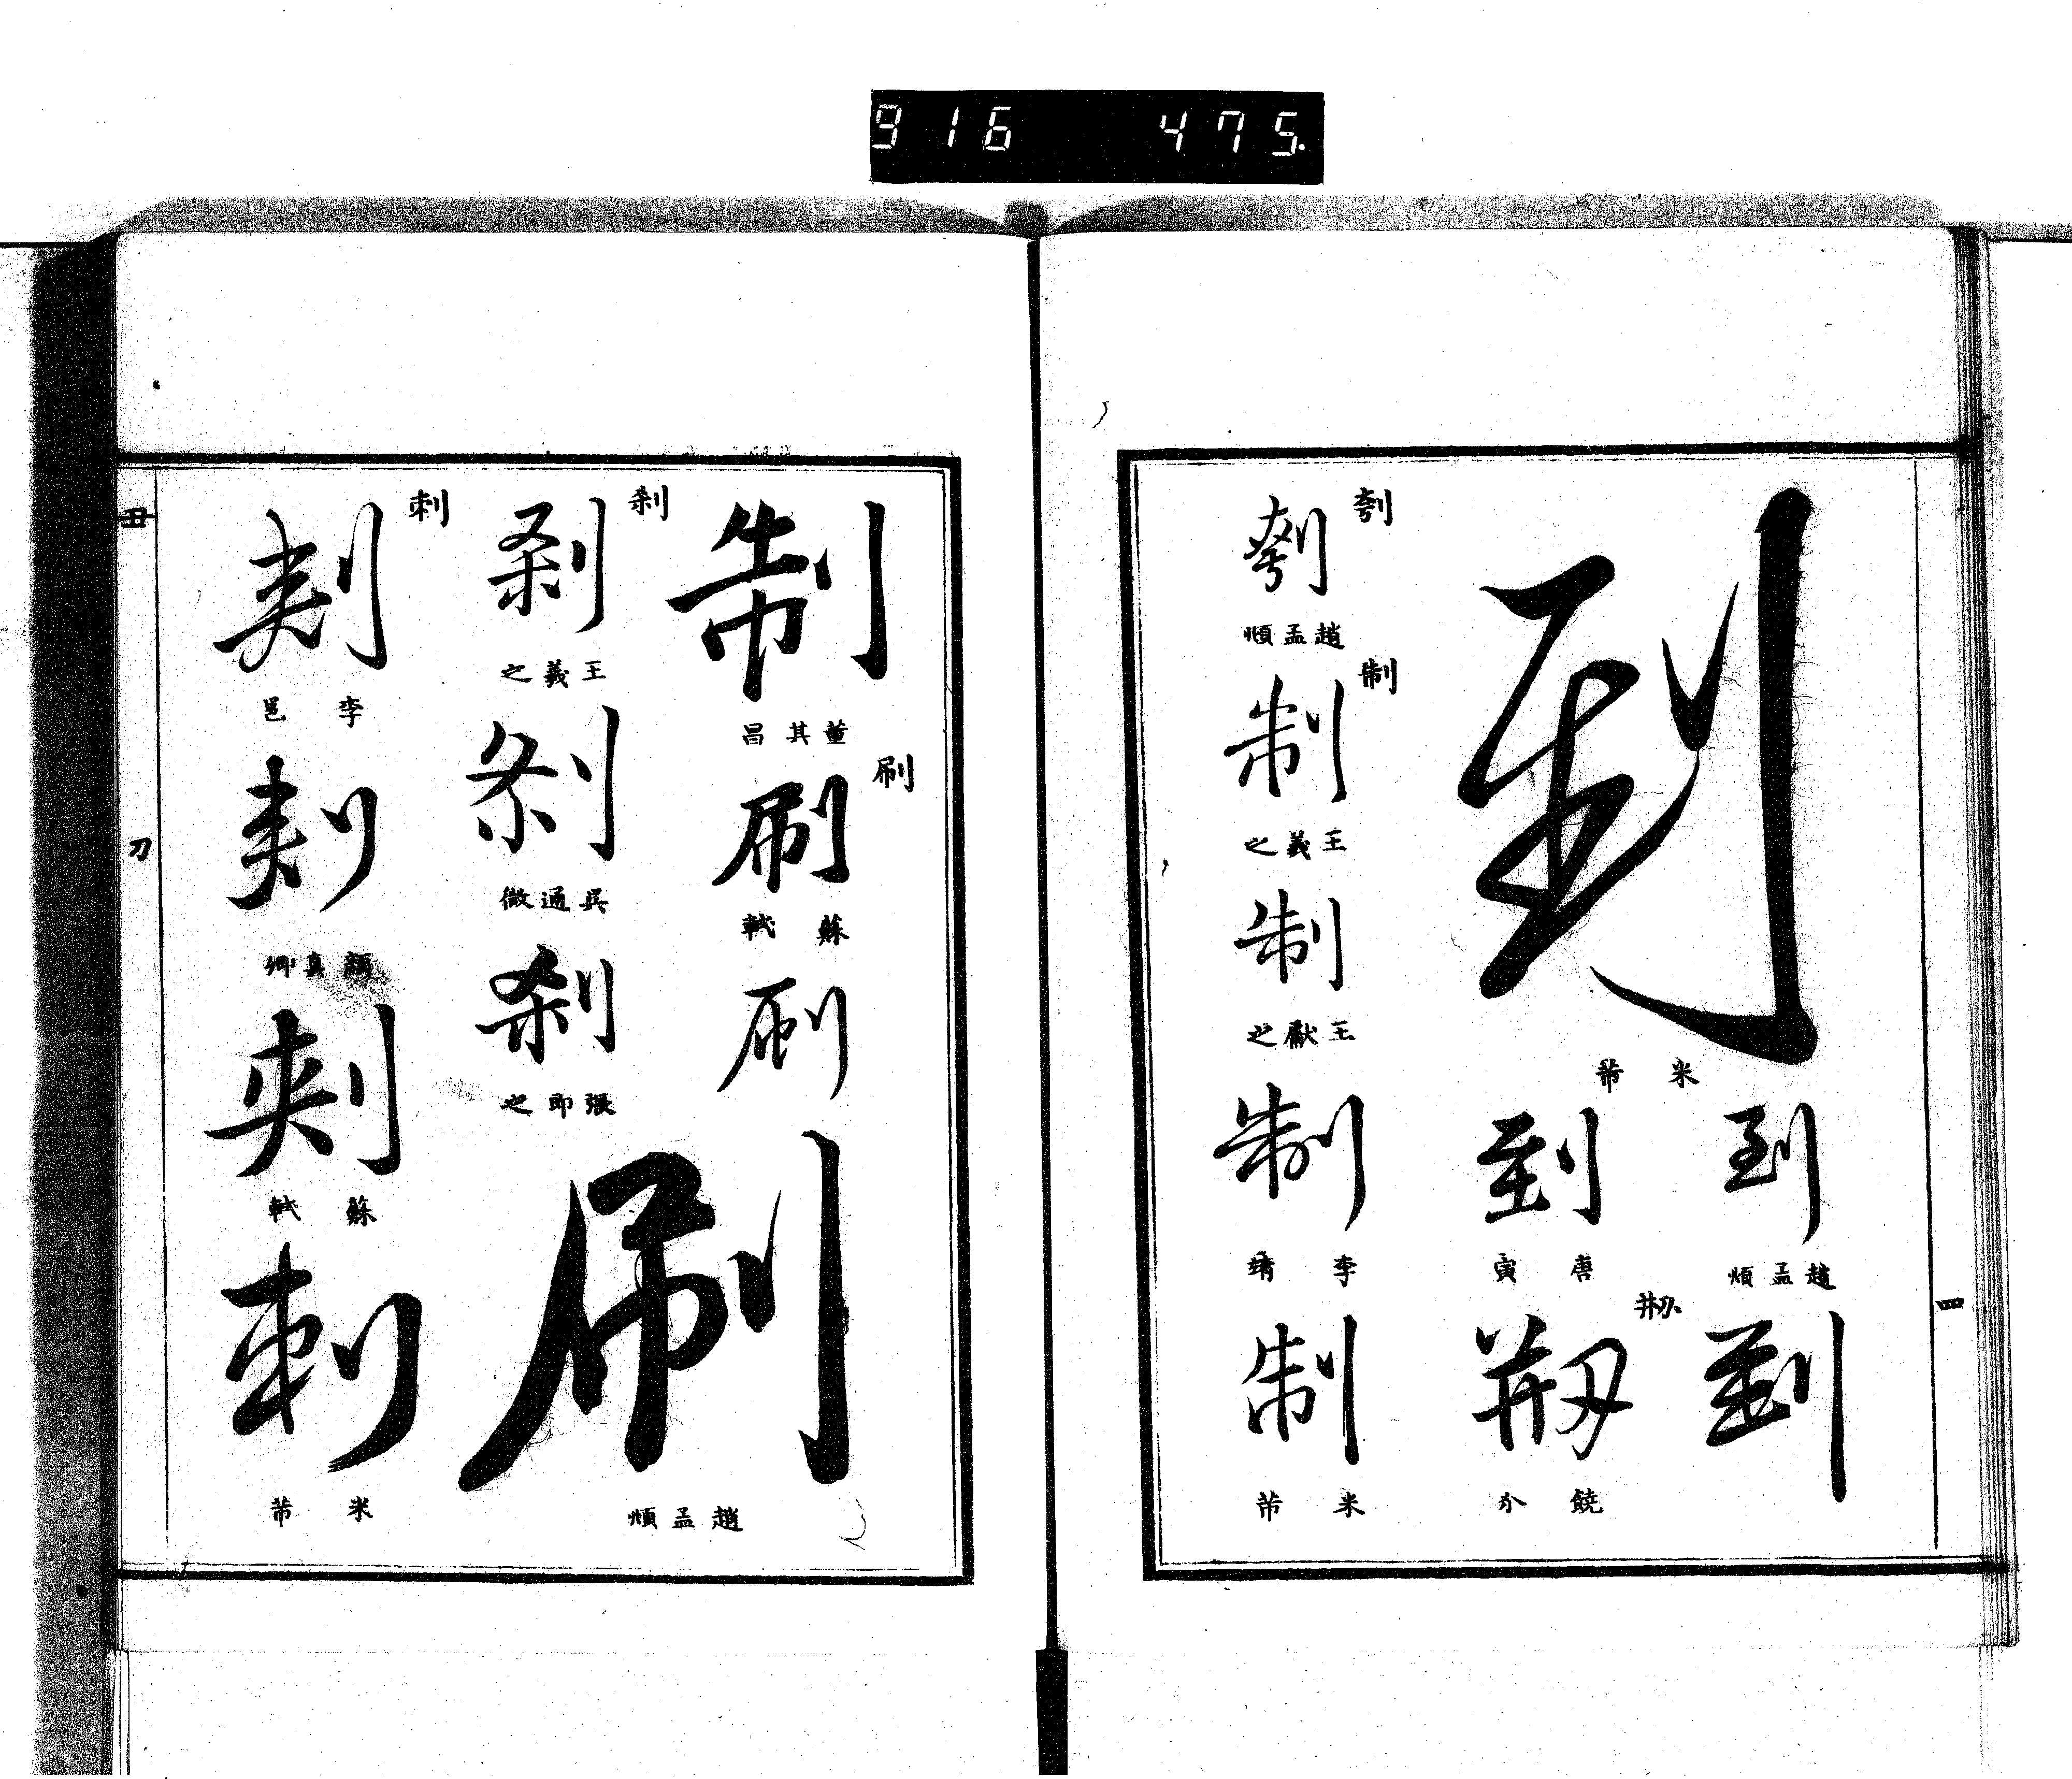 916 475.
四
到
米芾
到
趙孟頫
到
到
唐寅
刱
刱
饒介
刳
刳
趙孟頫
制
制
王羲之
制
王獻之
制
李靖
制
米芾
制
董其昌
刷
刷
蘇軾
刷
刷
趙孟頫
刹
刹
王羲之
刹
吳通微
刹
張即之
刺
刺
李邕
刺
顏真卿
刺
蘇軾
刺
米芾
丑
刀